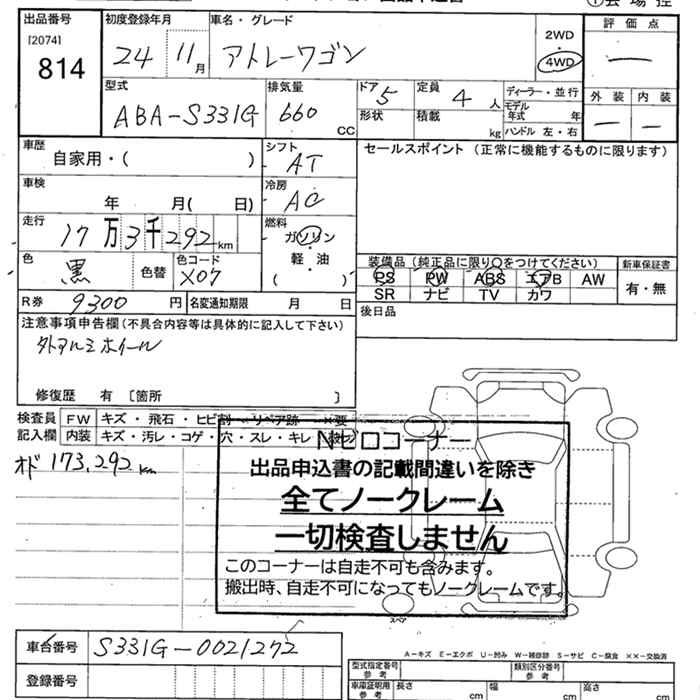 出品番号 初度登録年月 車名・グレード ①会場控
[2074] 2WD 評価点
814 24 11月 アトレーワゴン 4WD —
型式 排気量 ドア 5 定員 4人 ディーラー・並行 外装 内装
ABA-S331G 660cc 形状 積載 kg モデル年式 年 — —
ハンドル 左・右
車歴 シフト セールスポイント (正常に機能するものに限ります)
自家用・( ) AT
車検 冷房
年 月( 日) AC
走行 燃料
17万3千292km ガソリン
・
色 色コード 軽・油 装備品 (純正品に限り○をつけてください) 新車保証書
黒 色替 X07 ( ) PS PW ABS エアB AW 有・無
R券 9300円 名変通知期限 月 日 SR ナビ TV カワ
注意事項申告欄(不具合内容等は具体的に記入して下さい) 後日品
外アルミホイール
修復歴 有 [箇所 ]
検査員 FW キズ・飛石・ヒビ割・リペア跡 ×要
記入欄 内装 キズ・汚レ・コゲ・穴・スレ・キレ
オド 173,292km
Nゼロコーナー
出品申込書の記載間違いを除き
全てノークレーム
一切検査しません
このコーナーは自走不可も含みます。
搬出時、自走不可になってもノークレームです。
スペア
車台番号 S331G-0021272
登録番号
A-キズ E-エクボ U-凹み W-補修跡 S-サビ C-腐食 ××-交換済
型式指定番号 参考 類別区分番号 参考
車庫証明用 参考 長さ cm 幅 cm 高さ cm